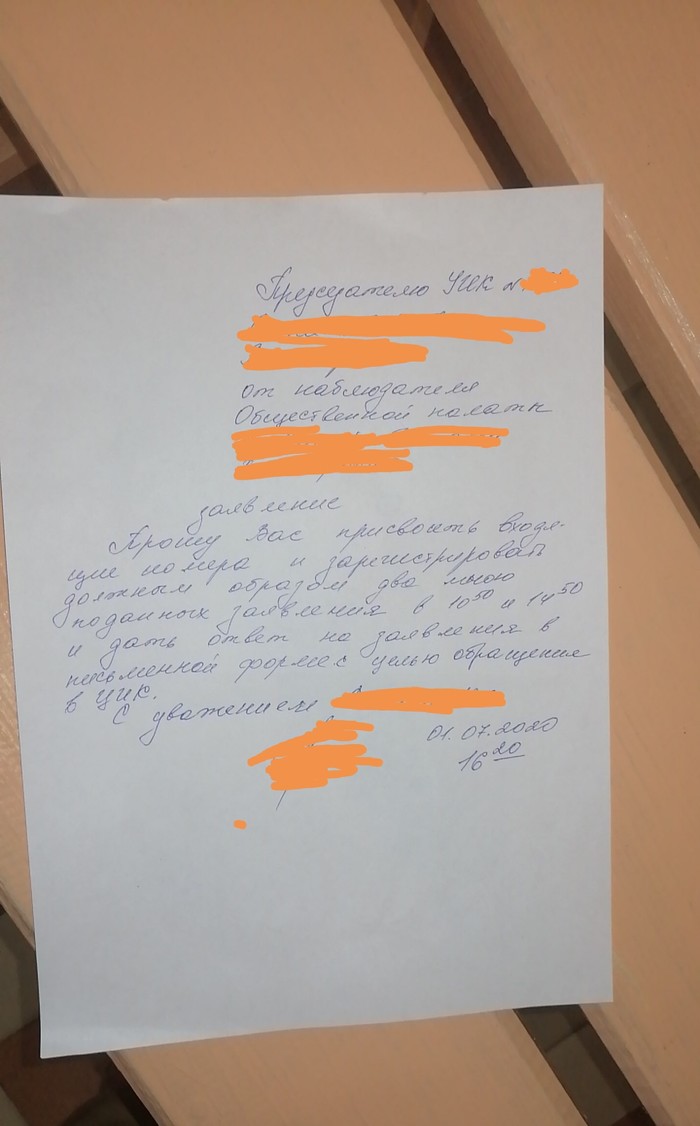 Председателю УИК №
от наблюдателя
Общественной палаты
заявление
Прошу Вас присвоить входя-
щие номера и зарегистрировать
должным образом два мною
поданных заявления в 10⁵⁰ и 14⁵⁰
и дать ответ на заявления в
письменной форме с целью обращения
в ЦИК.
С уважением
01.07.2020
16²⁰